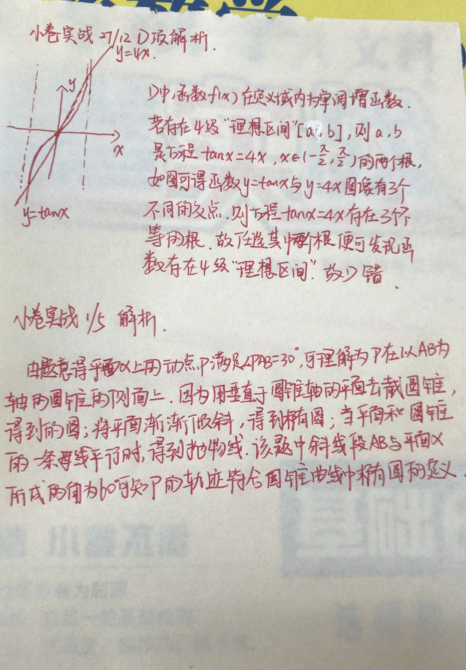 小卷实战 27/12 D项解析.
y=4x.
y
x
y=tanx
D中,函数f(x)在定义域内为单调增函数.
若存在4级“理想区间”[a,b],则a,b
是方程 tanx=4x, x∈(-π/2,π/2)的两个根,
如图可得函数y=tanx与y=4x图像有3个
不同的交点.则方程tanx=4x存在3个不
等的根.故任选其中两个根便可发现函
数存在4级“理想区间”.故D错.
小卷实战 1/5 解析.
由题意得平面α上用动点P满足∠PAB=30°,可理解为P在以AB为
轴的圆锥的侧面上.因为用垂直于圆锥轴的平面去截圆锥,
得到的圆;将平面渐渐倾斜,得到椭圆;当平面和圆锥
的一条母线平行时,得到抛物线.该题中斜线段AB与平面α
所成的角为60°可知P的轨迹符合圆锥曲线中椭圆的定义.